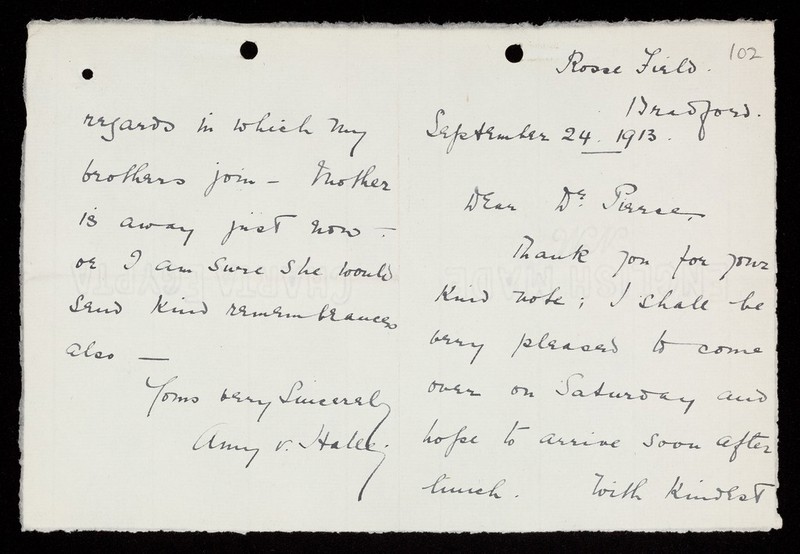 102
Rosse Field.
Bradford.
September 24. 1913.
Dear Dr. Pierce,
Thank you for your
kind note; I shall be
very pleased to come
over on Saturday and
hope to arrive soon after
lunch. With kindest
regards in which my
brothers join – Mother
is away just now –
or I am sure she would
send kind remembrances
also —
Yours very Sincerely
Amy V.
ENGLISH MADE
CHARTA EGYPTA